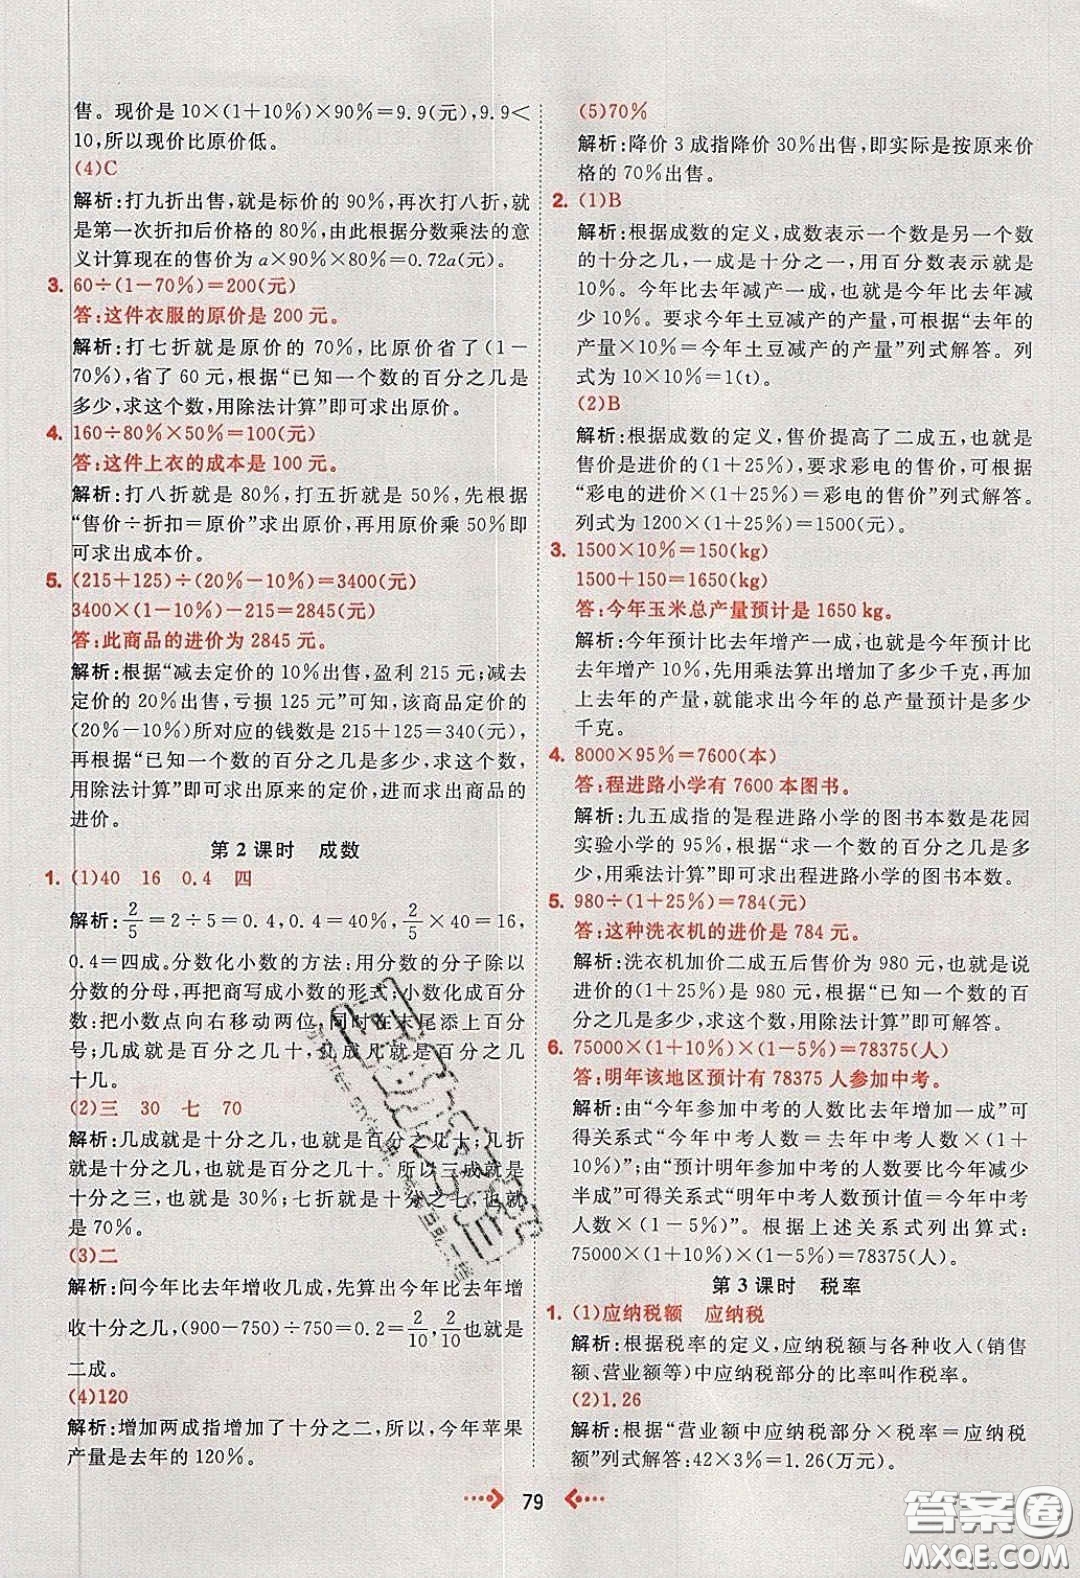 售。现价是 10×(1+10%)×90%=9.9(元),9.9<
10,所以现价比原价低。
(4)C
解析:打九折出售,就是标价的 90%,再次打八折,就
是第一次折扣后价格的 80%,由此根据分数乘法的意
义计算现在的售价为 a×90%×80%=0.72a(元)。
3. 60÷(1-70%)=200(元)
答:这件衣服的原价是 200 元。
解析:打七折就是原价的 70%,比原价少了(1-
70%),省了 60 元,根据“已知一个数的百分之几是
多少,求这个数,用除法计算”即可求出原价。
4. 160÷80%×50%=100(元)
答:这件上衣的成本是 100 元。
解析:打八折就是 80%,打五折就是 50%,先根据
“售价÷折扣=原价”求出原价,再用原价乘 50%即
可求出成本价。
5. (215+125)÷(20%-10%)=3400(元)
3400×(1-10%)-215=2845(元)
答:此商品的进价为 2845 元。
解析:根据“减去定价的 10%出售,盈利 215 元;减去
定价的 20%出售,亏损 125 元”可知,该商品定价的
(20%-10%)所对应的钱数是 215+125=340(元),
再根据“已知一个数的百分之几是多少,求这个数,
用除法计算”即可求出原来的定价,进而求出商品的
进价。
第 2 课时 成数
1. (1)40 16 0.4 四
解析:2/5=2÷5=0.4,0.4=40%,2/5×40=16,
0.4=四成。分数化小数的方法:用分数的分子除以
分数的分母,再把商写成小数的形式;小数化成百分
数:把小数点向右移动两位,同时在末尾添上百分
号;几成就是百分之几十,几成几就是百分之几
十几。
(2)三 30 七 70
解析:几成就是十分之几,也就是百分之几十;几折
就是十分之几,也就是百分之几十。所以三成就是
十分之三,也就是 30%;七折就是十分之七,也就
是 70%。
(3)二
解析:问今年比去年增收几成,先算出今年比去年增
收十分之几,(900-750)÷750=0.2=2/10,2/10也就是
二成。
(4)120
解析:增加两成指增加了十分之二,所以,今年苹果
产量是去年的 120%。
(5)70%
解析:降价 3 成指降价 30%出售,即实际是按原来价
格的 70%出售。
2. (1)B
解析:根据成数的定义,成数表示一个数是另一个数
的十分之几,一成是十分之一,用百分数表示就是
10%。今年比去年减产一成,也就是今年比去年减
少 10%。要求今年土豆减产的产量,可根据“去年的
产量×10%=今年土豆减产的产量”列式解答。列
式为 10×10%=1(t)。
(2)B
解析:根据成数的定义,售价提高了二成五,也就是
售价是进价的(1+25%),要求彩电的售价,可根据
“彩电的进价×(1+25%)=彩电的售价”列式解答。
列式为 1200×(1+25%)=1500(元)。
3. 1500×10%=150(kg)
1500+150=1650(kg)
答:今年玉米总产量预计是 1650 kg。
解析:今年预计比去年增产一成,也就是今年预计比
去年增产 10%,先用乘法算出增加了多少千克,再加
上去年的产量,就能求出今年的总产量预计是多少
千克。
4. 8000×95%=7600(本)
答:程进路小学有 7600 本图书。
解析:九五成指的是程进路小学的图书本数是花园
实验小学的 95%,根据“求一个数的百分之几是多
少,用乘法计算”可以计算出程进路小学的图书本数。
5. 980÷(1+25%)=784(元)
答:这种洗衣机的进价是 784 元。
解析:洗衣机加价二成五后售价为 980 元,也就是说
进价的(1+25%)是 980 元,根据“已知一个数的百
分之几是多少,求这个数,用除法计算”即可解答。
6. 75000×(1+10%)×(1-5%)=78375(人)
答:明年该地区预计有 78375 人参加中考。
解析:由“今年参加中考的人数比去年增加一成”可
得关系式“今年中考人数=去年中考人数×(1+
10%)”;由“预计明年中考的人数要比今年减少
半成”可得关系式“明年中考人数预计值=今年中考
人数×(1-5%)”。根据上述关系式列出算式:
75000×(1+10%)×(1-5%)=78375(人)。
第 3 课时 税率
1. (1)应纳税额 应纳税
解析:根据税率的定义,应纳税额与各种收入(销售
额、营业额等)中应纳税部分的比率叫作税率。
(2)1.26
解析:根据“营业额中应纳税部分×税率=应纳税
额”列式解答:42×3%=1.26(万元)。
79
答案圈
MXQE.COM